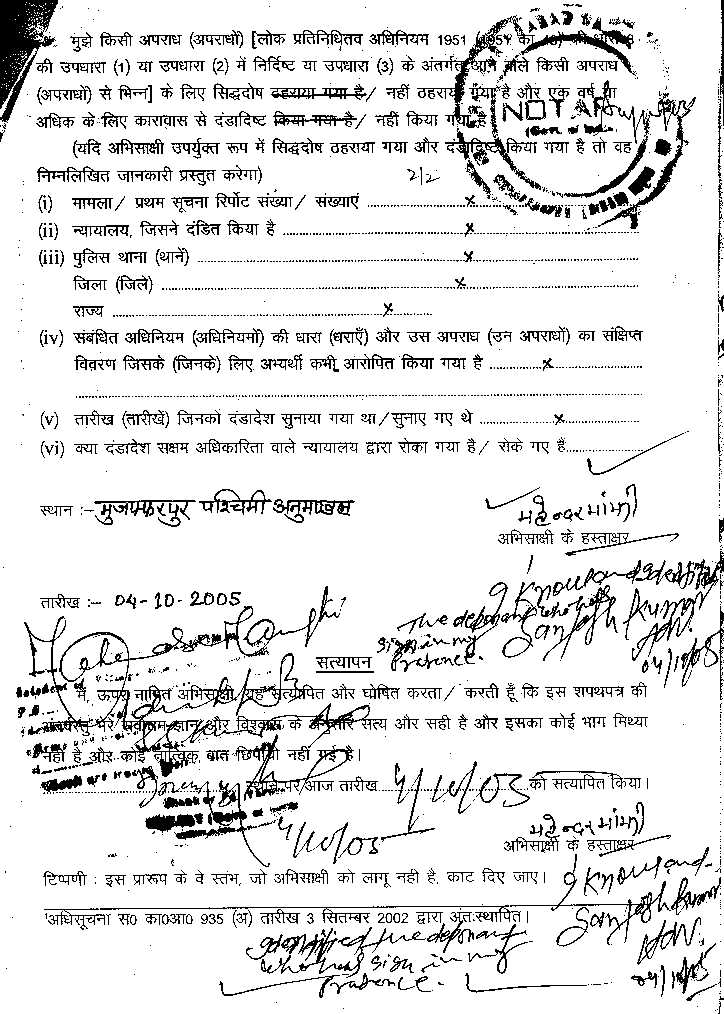 मुझे किसी अपराध (अपराधों) [लोक प्रतिनिधितव अधिनियम 1951 (1951 का
की उपधारा (1) या उपधारा (2) में निर्दिष्ट या उपधारा (3) के अंतर्गत आने वाले किसी अपराध
(अपराधों) से भिन्न] के लिए सिद्धदोष ठहराया गया है / नहीं ठहराया गया है और एक वर्ष या
अधिक के लिए कारावास से दंडादिष्ट किया गया है / नहीं किया गया है
NOTARY
(Govt. of India)
(यदि अभिसाक्षी उपर्युक्त रूप में सिद्धदोष ठहराया गया और दंडादिष्ट किया गया है तो वह
निम्नलिखित जानकारी प्रस्तुत करेगा)
(i) मामला / प्रथम सूचना रिर्पोट संख्या / संख्याएं ..................x..................
(ii) न्यायालय, जिसने दंडित किया है ..................x..................
(iii) पुलिस थाना (थानें) ..................x..................
जिला (जिले) ..................x..................
राज्य ..................x..................
(iv) संबंधित अधिनियम (अधिनियमों) की धारा (धराएँ) और उस अपराध (उन अपराधों) का संक्षिप्त
विवरण जिसके (जिनके) लिए अभ्यर्थी कभी आरोपित किया गया है ..................x..................
(v) तारीख (तारीखें) जिनको दंडादेश सुनाया गया था / सुनाए गए थे ..................x..................
(vi) क्या दंडादेश सक्षम अधिकारिता वाले न्यायालय द्वारा रोका गया है / रोके गए हैं..................
स्थान :– मुजफ्फरपुर पश्चिमी अनुमण्डल
महेन्दर मांझी
अभिसाक्षी के हस्ताक्षर
तारीख :– 04-10-2005
The deponent who has
sign in my
Presence.
Sanjosh Kumar
Adv.
04/10/05
सत्यापन
मैं, ऊपर नामित अभिसाक्षी यह सत्यापित और घोषित करता / करती हूँ कि इस शपथपत्र की
अंतर्वस्तु मेरे सर्वोत्तम ज्ञान और विश्वास के अनुसार सत्य और सही है और इसका कोई भाग मिथ्या
नहीं है और कोई तात्विक बात छिपायी नहीं गई है।
स्थान पर आज तारीख 4/10/05 को सत्यापित किया।
4/10/05
महेन्दर मांझी
अभिसाक्षी के हस्ताक्षर
टिप्पणी : इस प्रारूप के वे स्तंभ, जो अभिसाक्षी को लागू नही है, काट दिए जाए।
I know and
Sanjosh Kumar
Adv.
04/10/05
¹अधिसूचना स0 का0आ0 935 (अ) तारीख 3 सितम्बर 2002 द्वारा अंतःस्थापित।
identified the deponent
who has sign in my
Presence.